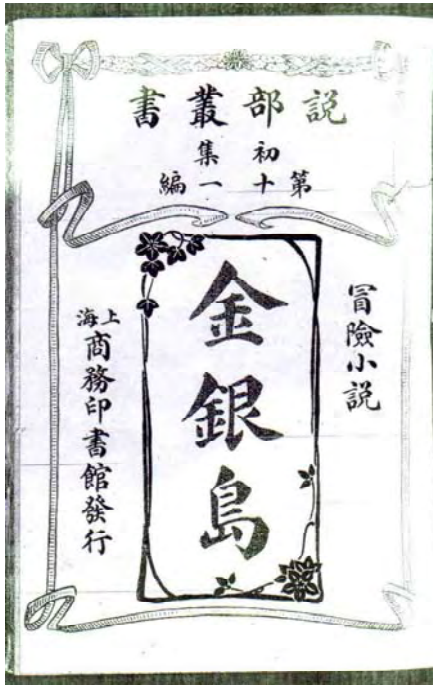 説部叢書
初集
第十一編
冒險小説
金銀島
上海
商務印書館發行